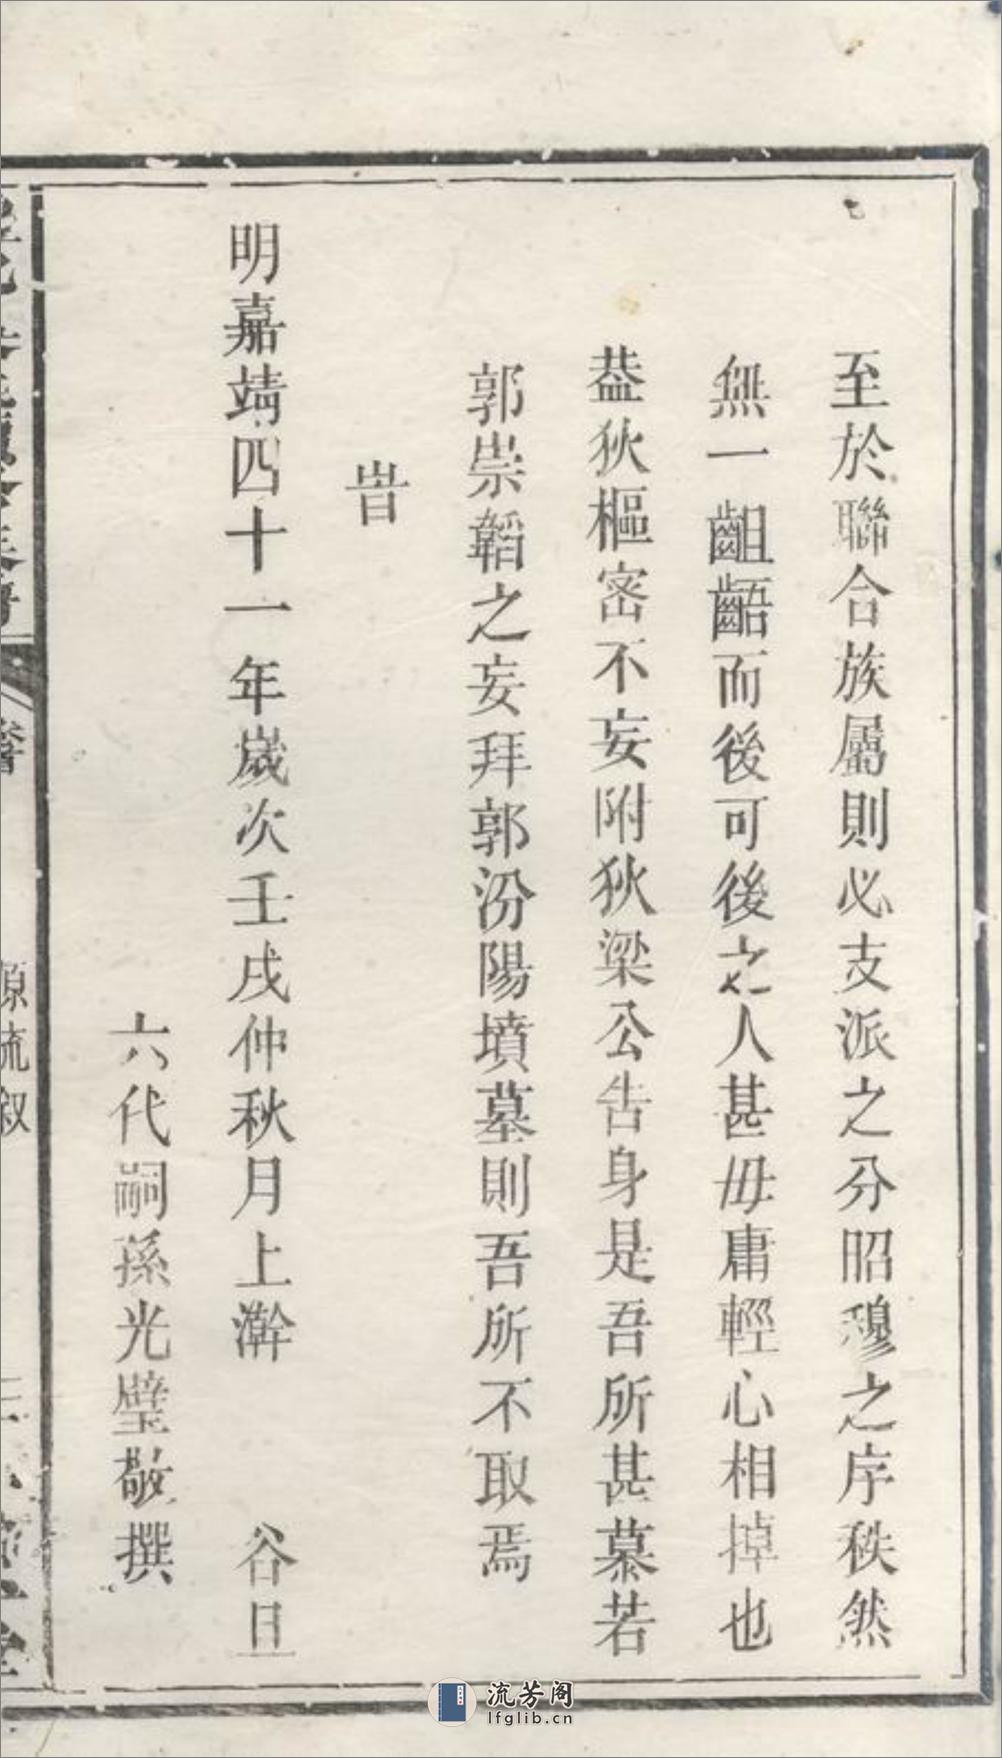 至於聯合族屬則必支派之分昭穆之序秩然
無一齟齬而後可後之人甚毋庸輕心相掉也
葢狄樞密不妄附狄梁公告身是吾所甚慕若
郭崇韜之妄拜郭汾陽墳墓則吾所不取焉
旹
明嘉靖四十一年歲次壬戌仲秋月上澣 谷旦
六代嗣孫光璧敬撰
源流叙
流芳阁
lfglib.cn